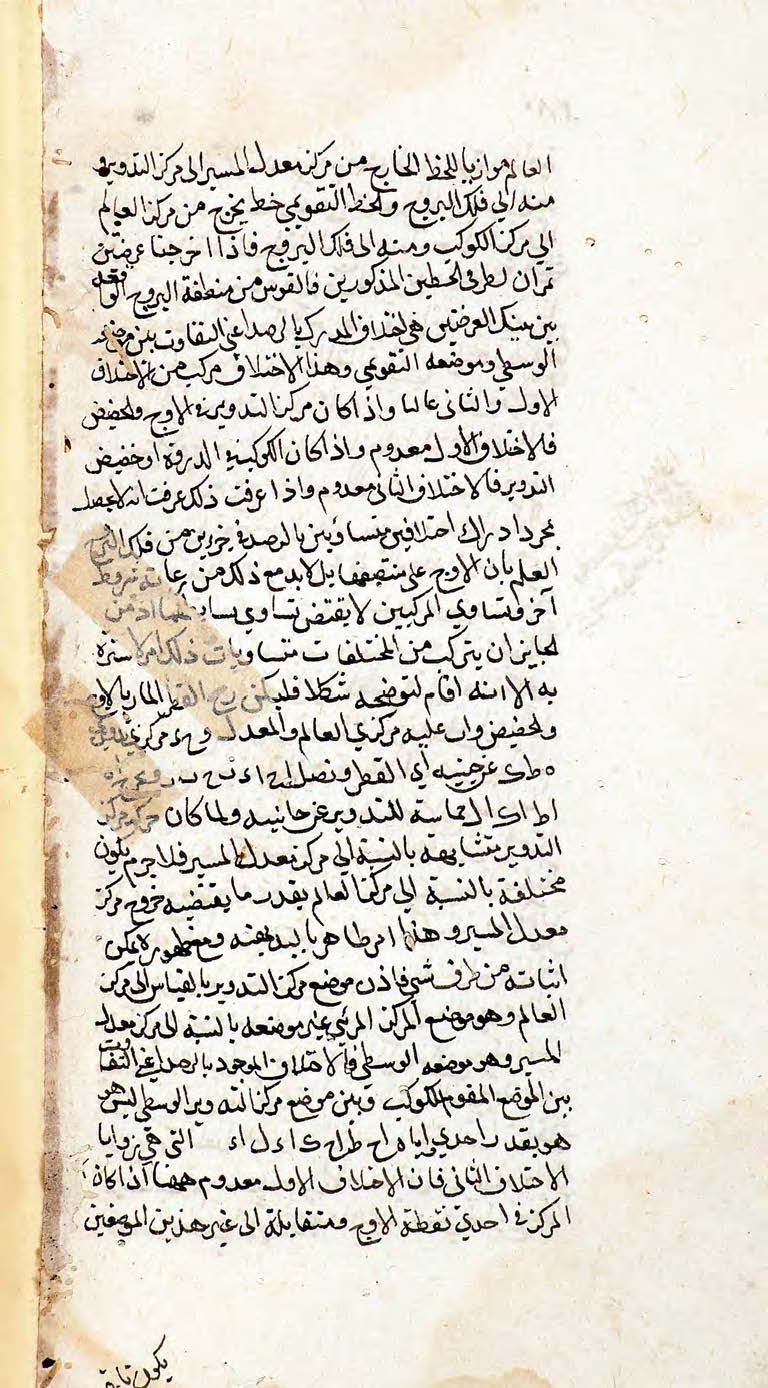 العالم موازيا للخط الخارج من مركز معدل المسير الى مركز التدوير و
منه الي فلك البروج والخط التقويمي خط يخرج من مركز العالم
الي مركز الكوكب ومنه الى فلك البروج فاذا اخرجنا عرضيتين
تمران بطرفي الخطين المذكورين فالقوس من منطقة البروج الواقعة
بين تينك العرضيتين هي اختلاف المدرك بالرصد اعني التفاوت بين موضعه
الوسطي وموضعه التقويمي وهذا الاختلاف مركب من الاختلاف
الاول والثاني غالبا واذا كان مركز التدوير في الاوج والحضيض
فالاختلاف الاول معدوم واذا كان الكوكب في الذروة او حضيض
التدوير فالاختلاف الثاني معدوم واذا عرفت ذلك عرفت انه لا يحصل
بمجرد ادراك اختلافين متساويين بالرصد في جزءين من فلك البروج
العلم بان الاوج على منتصفهما بل لا بد مع ذلك من رعاية شروط
آخر فتساوي المركبين لا يقتضي تساوي بسايطهما اذ من
الجايز ان يتركب من المختلفات متساويات ذلك امر لا سترة
به الا انه اقام لتوضيحه شكلا فليكن القطر المار بالاوج
والحضيض و ا ب عليه مركزي العالم والمعدل و مركزي تدوير
ه ط ك عن جنبيه اي القطر ونصل
ا ط ا ك ا ل مماسة للتدوير عن جانبيه ولما كان حركة مركز
التدوير متشابهة بالنسبة الي مركز معدل المسير فلا جرم يكون
مختلفة بالنسبة الي مركز العالم بقدر ما يقتضيه خروج مركز
معدل المسير وهذا امر ظاهر بالبديهة ومع ظهوره يمكن
اثباته من طرف شتي فاذن موضع مركز التدوير بالقياس الى مركز
العالم وهو موضع المركز المرئي غير موضعه بالنسبة الى مركز معدل
المسير وهو موضعه الوسطي فالاختلاف الموجود بالرصد اعني التفاوت
بين الموضع المقوم للكوكب وبين موضع مركز التدوير الوسطي ليس هو
هو بقدر احدي زوايا ه ا ح ط ا ح ك ا ء ل ا ء التي هي زوايا
الاختلاف الثاني فان الاختلاف الاول معدوم ههنا اذا كان
المركز في احدي نقطة الاوج ومتقابلة الى غير هذين الموضعين
يكون